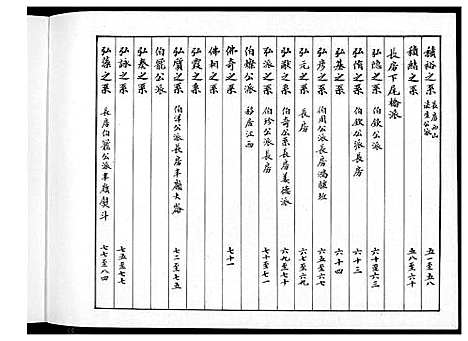 積裕之系 長房西山 法生公派 五一至五八
積結之系 五八至六十
長房下尾橋派
弘隐之系 伯欽公派 六十至六三
弘脩之系 伯欽公派長房 六十三
弘基之系 六十四
弘彦之系 伯周公派長房鴻臚班 六五至六七
弘元之系 長房 六七至六九
弘猷之系 伯奇公系長房姜德派 六九至七十
弘派之系 伯珍公派長房 七十至七一
伯燦公派 移居江西
佛奇之系 七十一
佛祠之系
弘霞之系
弘賓之系 伯洋公派長房丰廳大崙 七二至七五
伯寵公派
弘泰之系
弘詠之系 七五至七七
弘藻之系 長房伯寵公派丰廳熨斗 七七至八四